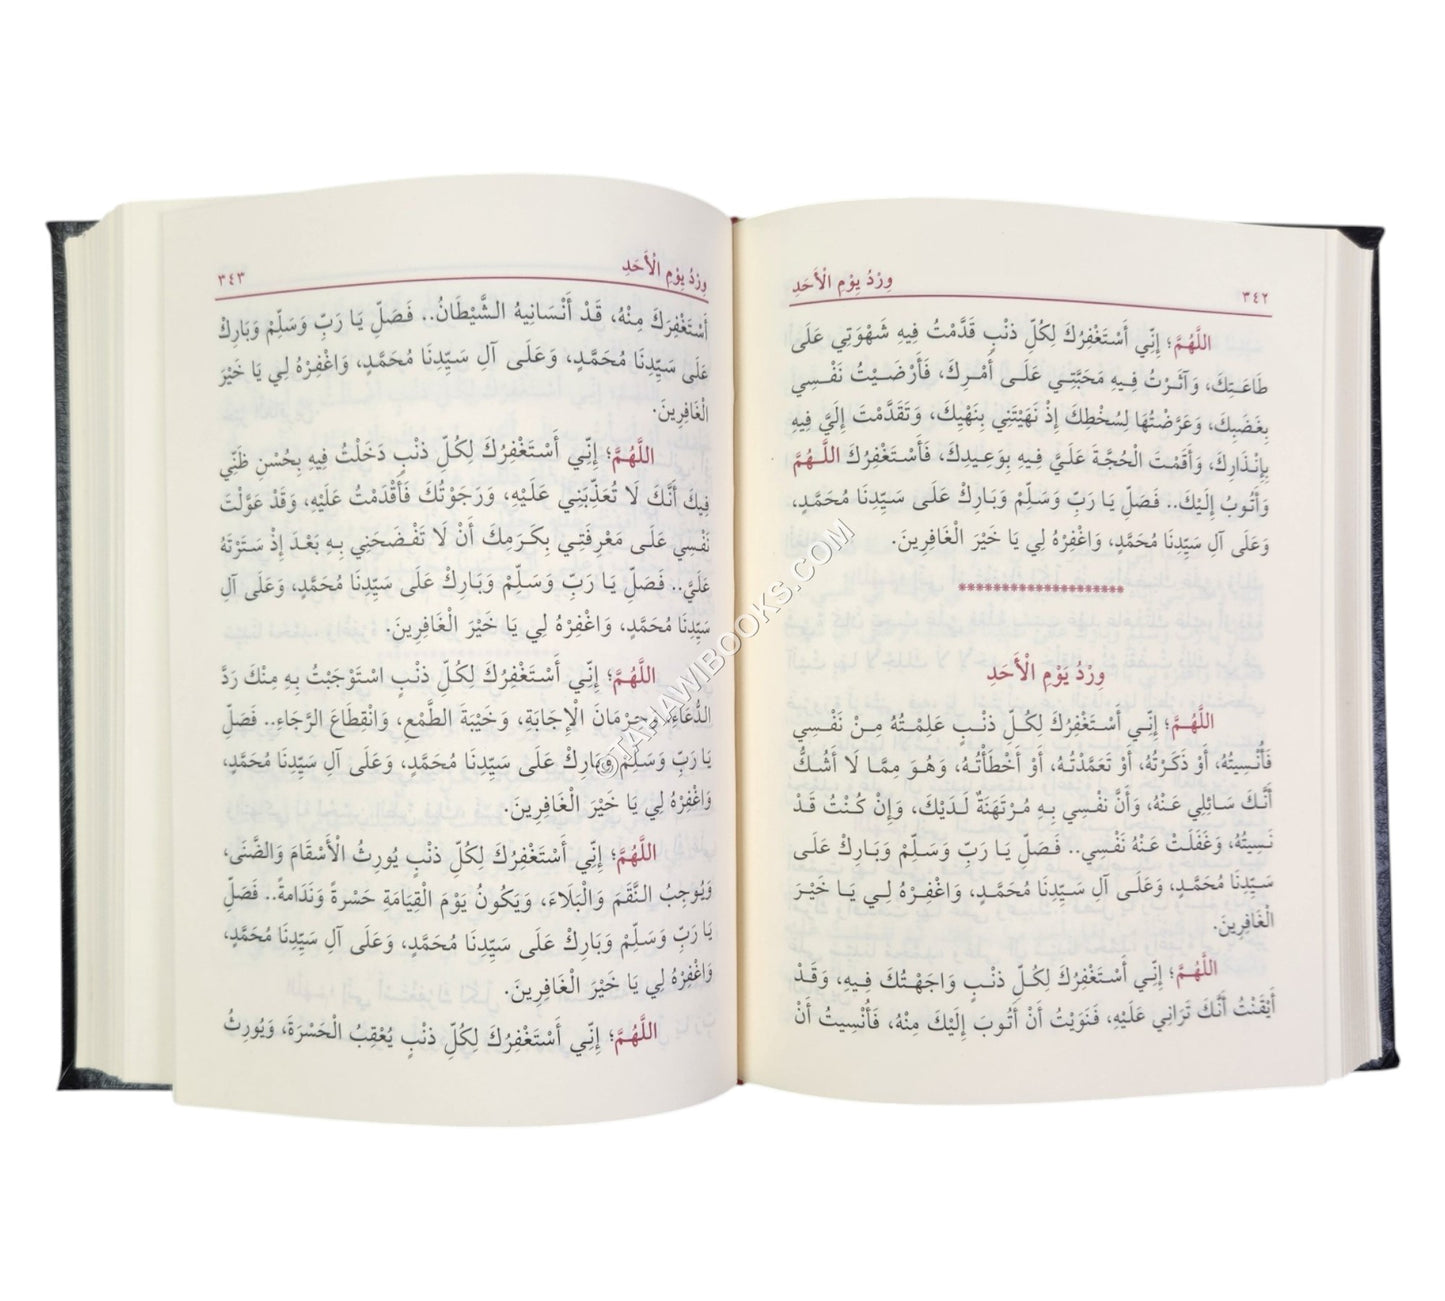 ٣٤٢ وِرْدُ يَوْمِ الْأَحَدِ
اللَّهُمَّ؛ إِنِّي أَسْتَغْفِرُكَ لِكُلِّ ذَنْبٍ قَدَّمْتُ فِيهِ شَهْوَتِي عَلَى
طَاعَتِكَ، وَآثَرْتُ فِيهِ مَحَبَّتِي عَلَى أَمْرِكَ، فَأَرْضَيْتُ نَفْسِي
بِغَضَبِكَ، وَعَرَّضْتُهَا لِسُخْطِكَ إِذْ نَهَيْتَنِي بِنَهْيِكَ، وَتَقَدَّمْتَ إِلَيَّ فِيهِ
بِإِنْذَارِكَ، وَأَقَمْتَ الْحُجَّةَ عَلَيَّ فِيهِ بِوَعِيدِكَ، فَأَسْتَغْفِرُكَ اللَّهُمَّ
وَأَتُوبُ إِلَيْكَ.. فَصَلِّ يَا رَبِّ وَسَلِّمْ وَبَارِكْ عَلَى سَيِّدِنَا مُحَمَّدٍ،
وَعَلَى آلِ سَيِّدِنَا مُحَمَّدٍ، وَاغْفِرْهُ لِي يَا خَيْرَ الْغَافِرِينَ.
********************
وِرْدُ يَوْمِ الْأَحَدِ
اللَّهُمَّ؛ إِنِّي أَسْتَغْفِرُكَ لِكُلِّ ذَنْبٍ عَلِمْتُهُ مِنْ نَفْسِي
فَأُنْسِيتُهُ، أَوْ ذَكَرْتُهُ، أَوْ تَعَمَّدْتُهُ، أَوْ أَخْطَأْتُهُ، وَهُوَ مِمَّا لَا أَشُكُّ
أَنَّكَ سَائِلِي عَنْهُ، وَأَنَّ نَفْسِي بِهِ مُرْتَهَنَةٌ لَدَيْكَ، وَإِنْ كُنْتُ قَدْ
نَسِيتُهُ، وَغَفَلَتْ عَنْهُ نَفْسِي.. فَصَلِّ يَا رَبِّ وَسَلِّمْ وَبَارِكْ عَلَى
سَيِّدِنَا مُحَمَّدٍ، وَعَلَى آلِ سَيِّدِنَا مُحَمَّدٍ، وَاغْفِرْهُ لِي يَا خَيْرَ
الْغَافِرِينَ.
اللَّهُمَّ؛ إِنِّي أَسْتَغْفِرُكَ لِكُلِّ ذَنْبٍ وَاجَهْتُكَ فِيهِ، وَقَدْ
أَيْقَنْتُ أَنَّكَ تَرَانِي عَلَيْهِ، فَنَوَيْتُ أَنْ أَتُوبَ إِلَيْكَ مِنْهُ، فَأُنْسِيتُ أَنْ
وِرْدُ يَوْمِ الْأَحَدِ ٣٤٣
أَسْتَغْفِرَكَ مِنْهُ، قَدْ أَنْسَانِيهُ الشَّيْطَانُ.. فَصَلِّ يَا رَبِّ وَسَلِّمْ وَبَارِكْ
عَلَى سَيِّدِنَا مُحَمَّدٍ، وَعَلَى آلِ سَيِّدِنَا مُحَمَّدٍ، وَاغْفِرْهُ لِي يَا خَيْرَ
الْغَافِرِينَ.
اللَّهُمَّ؛ إِنِّي أَسْتَغْفِرُكَ لِكُلِّ ذَنْبٍ دَخَلْتُ فِيهِ بِحُسْنِ ظَنِّي
فِيكَ أَنَّكَ لَا تُعَذِّبَنِي عَلَيْهِ، وَرَجَوْتُكَ فَأَقْدَمْتُ عَلَيْهِ، وَقَدْ عَوَّلْتَ
نَفْسِي عَلَى مَعْرِفَتِي بِكَرَمِكَ أَنْ لَا تَفْضَحَنِي بِهِ بَعْدَ إِذْ سَتَرْتَهُ
عَلَيَّ.. فَصَلِّ يَا رَبِّ وَسَلِّمْ وَبَارِكْ عَلَى سَيِّدِنَا مُحَمَّدٍ، وَعَلَى آلِ
سَيِّدِنَا مُحَمَّدٍ، وَاغْفِرْهُ لِي يَا خَيْرَ الْغَافِرِينَ.
اللَّهُمَّ؛ إِنِّي أَسْتَغْفِرُكَ لِكُلِّ ذَنْبٍ اسْتَوْجَبْتُ بِهِ مِنْكَ رَدَّ
الدُّعَاءِ، وَحِرْمَانَ الْإِجَابَةِ، وَخَيْبَةَ الطَّمْعِ، وَانْقِطَاعَ الرَّجَاءِ.. فَصَلِّ
يَا رَبِّ وَسَلِّمْ وَبَارِكْ عَلَى سَيِّدِنَا مُحَمَّدٍ، وَعَلَى آلِ سَيِّدِنَا مُحَمَّدٍ،
وَاغْفِرْهُ لِي يَا خَيْرَ الْغَافِرِينَ.
اللَّهُمَّ؛ إِنِّي أَسْتَغْفِرُكَ لِكُلِّ ذَنْبٍ يُورِثُ الْأَسْقَامَ وَالضَّنَى،
وَيُوجِبُ النَّقَمَ وَالْبَلَاءَ، وَيَكُونُ يَوْمَ الْقِيَامَةِ حَسْرَةً وَنَدَامَةً.. فَصَلِّ
يَا رَبِّ وَسَلِّمْ وَبَارِكْ عَلَى سَيِّدِنَا مُحَمَّدٍ، وَعَلَى آلِ سَيِّدِنَا مُحَمَّدٍ،
وَاغْفِرْهُ لِي يَا خَيْرَ الْغَافِرِينَ.
اللَّهُمَّ؛ إِنِّي أَسْتَغْفِرُكَ لِكُلِّ ذَنْبٍ يُعْقِبُ الْحَسْرَةَ، وَيُورِثُ
©TAHAWIBOOKS.COM